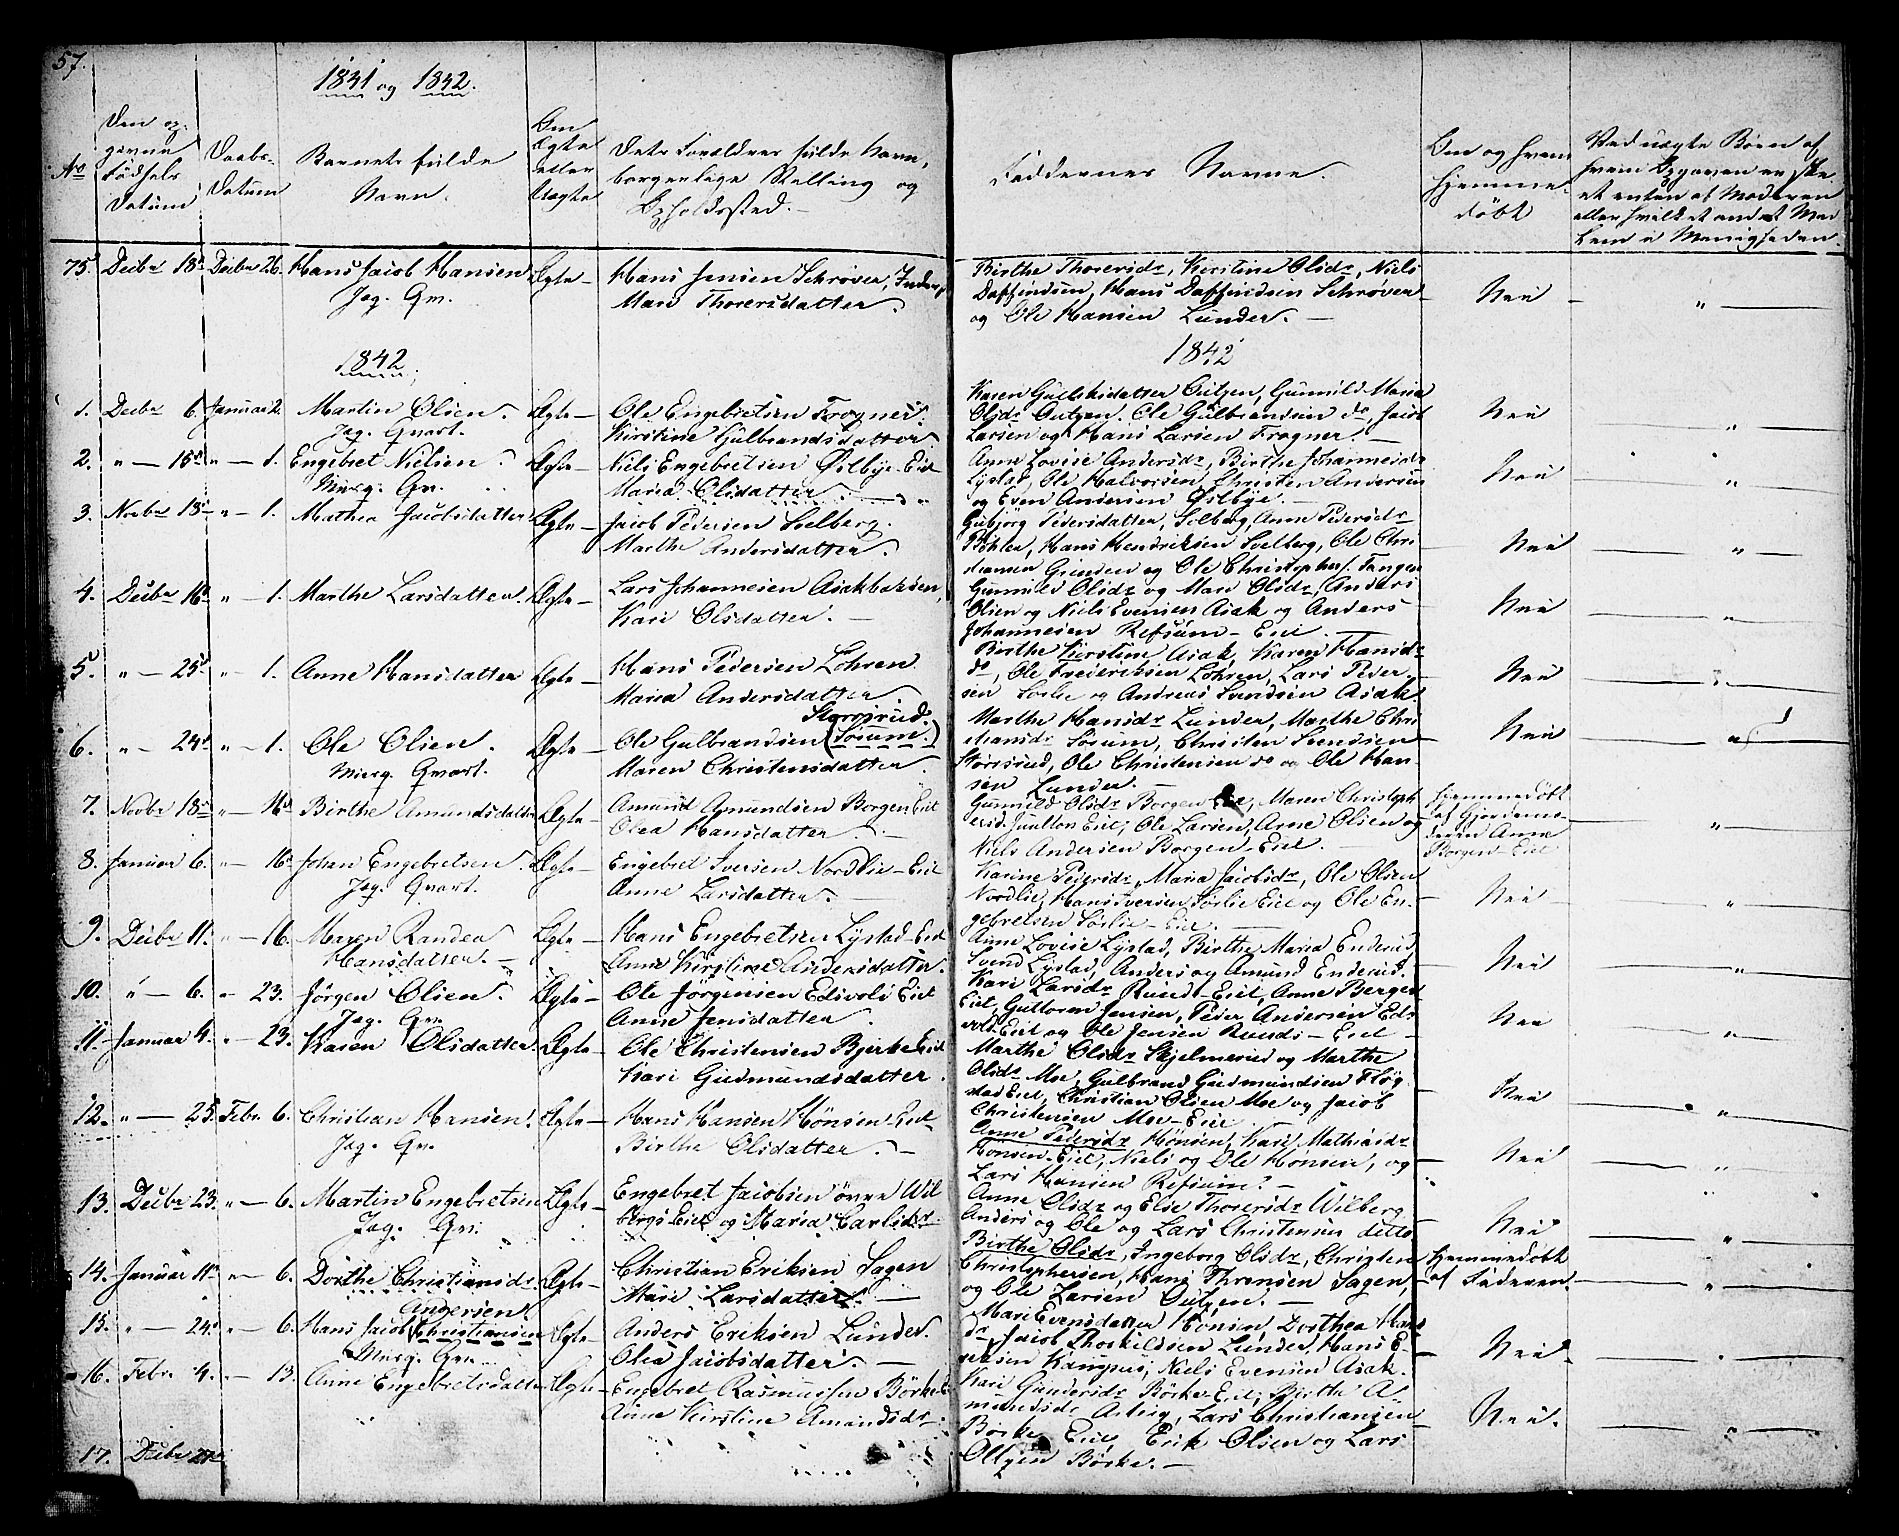 57.
1841 og 1842.
No
Den op-
givne
Fødsels
Datum
Daabs-
Datum
Barnets fulde
Navn.
Om
Ægte
eller
Uægte
Dets Forældres fulde Navn,
borgerlige Stilling og
Opholdssted.
Faddernes Navne.
Om og hvem
hjemme-
døbt
Ved uægte Børn af
hvem Opgaven er ske
et enten af Moderen
eller hvilket andet Med
lem i Menigheden.
75. Decbr 18. Decbr 26. Hans Jacob Hansen Ægte - Hans Jensen Schrøver,
Jag. Qv. Mari Thorersdatter.
Birthe Thorersdr, Kirstine Olsdr, Niels
Daffindsen, Hans Daffindsen Schrøver
og Ole Hansen Lunder. -
Nei "
1842 1842
1. Decbr 6. Januar 2. Martin Olsen. Ægte - Ole Engebretsen Frogner.
Jag. Qvart. Kirstine Gulbrandsdatter
Karen Gulliksdatter Outzen, Gunnild Maria
Olsdr Outzen. Ole Gulbrandsen do, Jacob
Larsen og Hans Larsen Frogner. -
Nei "
2. " - 15 " - 1. Engebret Nielsen. Ægte - Niels Engebretsen Østbye-Eiet
Marg. Qv. Maria Olsdatter. -
Anne Lovise Andersdr, Birthe Johannesdr
Lystad, Ole Halvorsen, Christen Andersen
og Even Andersen Østbye. -
Nei "
3. Novbr 18 " - 1. Mathea Jacobsdatter Ægte - Jacob Pedersen Solberg.
Marthe Andersdatter.
Gubjörg Pedersdatter, Solberg, Anne Pedersdr
Böhler, Hans Hendriksen Solberg, Ole Chri
stiansen Grinden og Ole Christophers. Tangen
Nei "
4. Decbr 16 " - 1. Marthe Larsdatter. Ægte - Lars Johannesen Asakbakken,
Kari Olsdatter. -
Gunnild Olsdr og Mari Olsdr, Anders
Olsen og Niels Evensen Asak og Anders
Johannesen Refsum - Eiet.
Nei "
5. " - 25 " - 1. Anne Hansdatter Ægte - Hans Pedersen Löhren
Maria Andersdatter.
Birthe Kirstine Asak, Karen Hansdr
do, Ole Frederiksen Löhren, Lars Peder-
sen Sørlie og Andreas Svendsen Asak.
Nei
6. " - 24 " - 1. Ole Olsen. Ægte - Ole Gulbrandsen (Sörum.)
Storsrud.
Marg. Qvart. Maren Christensdatter.
Marthe Hansdr Lunder, Marthe Chri
stiansdr Sörum, Christen Svendsen
Storsrud, Ole Christensen do og Ole Han-
sen Lunder.
Nei "
7. Novbr 18 " - 16 Birthe Amundsdatter Ægte - Amund Amundsen Borgen Eiet
Olea Hansdatter.
Gunnild Olsdr Borgen Eiet, Maren Christoph
ersd. Eiet, Ole Larsen, Arne Olsen og
Niels Andersen Borgen - Eiet.
Hjemmedöbt
af Gjordemo-
deren Anne
Borgen - Eiet
"
8. Januar 6. " - 16 Johan Engebretsen Ægte - Engebret Iversen Nordlie - Eiet
Jag. Qvart. Anne Larsdatter. -
Karine Pedersdr, Maria Jacobsdr, Ole Olsen
Nordlie, Hans Iversen Sørlie Eiet og Ole En-
gebretsen Sørlie - Eiet.
Nei "
9. Decbr 11. " - 16. Maren Randea Ægte - Hans Engebretsen Lystad - Eiet
Hansdatter. - Anne Kirstine Andersdatter.
Anne Lovise Lystad, Birthe Maria Enderud,
Svend Lystad, Anders og Amund Enderud.
Nei "
10. " - 6. " 23. Jörgen Olsen. Ægte - Ole Jörgensen Edsvold Eiet
Jag. Qv. Anne Jensdatter.
Kari Larsdr Ruud - Eiet, Anne Berger
Eiet, Guttorm Jensen, Peder Andersen Eds
vold Eiet og Ole Jensen Ruuds - Eiet
Nei "
11. Januar 4. " - 23. Karen Olsdatter. Ægte - Ole Christensen Bjerke Eiet
Kari Gudmundsdatter.
Marthe Olsdr Skjelmerud og Marthe
Olsdr Moe, Gulbrand Gudmundsen Flög-
stad Eiet, Christian Olsen Moe og Jacob
Christensen Moe - Eiet
Nei "
12. " - 25. Febr. 6. Christian Hansen. Ægte - Hans Hansen Hönsen - Eiet
Jag. Qv. Birthe Olsdatter. -
Anne Pedersdr Hönsen, Kari Mathisdr
Honsen - Eiet, Niels og Ole Hönsen, og
Lars Hansen Refsum. -
Nei "
13. Decbr 23. " - 6. Martin Engebretsen Ægte - Engebret Jacobsen övre Wil
Jag. Qv. bergs Eiet og Maria Carlsdr.
Anne Olsdr og Else Thorersdr Wilberg
Anders og Ole og Lars Christensen detto
Nei "
14. Januar 11. " - 6. Dorthe Christiansdr. Ægte - Christian Eriksen Sagen
Mari Larsdatter. -
Birthe Olsdr, Ingeborg Olsdr, Christen
Christophersen, Hans Thronsen Sagen,
og Ole Larsen Outzen. -
Hjemmedöbt
af Faderen.
"
15. " - 24. " - 6. Hans Jacob (Christiansen Ægte - Anders Eriksen Lunder.
Andersen
Marg. Qv. Olea Jacobsdatter. -
Mari Evensdatter Honsen, Dorthea Hans
dr, Jacob Thorkildsen Lunder, Hans E-
Kangrus, Niels Evensen Asak.
Nei "
16. Febr. 4. " - 13. Anne Engebretsdatter Ægte - Engebret Rasmussen Börke
Anne Kirstine Amundsdr.
Kari Gundersdr Börke - Eiet, Birthe A-
mundsdr Lars Christiansen
Börke Eiet, Erik Olsen og Lars
Ottzen Börke. -
Nei. "
17. Decbr